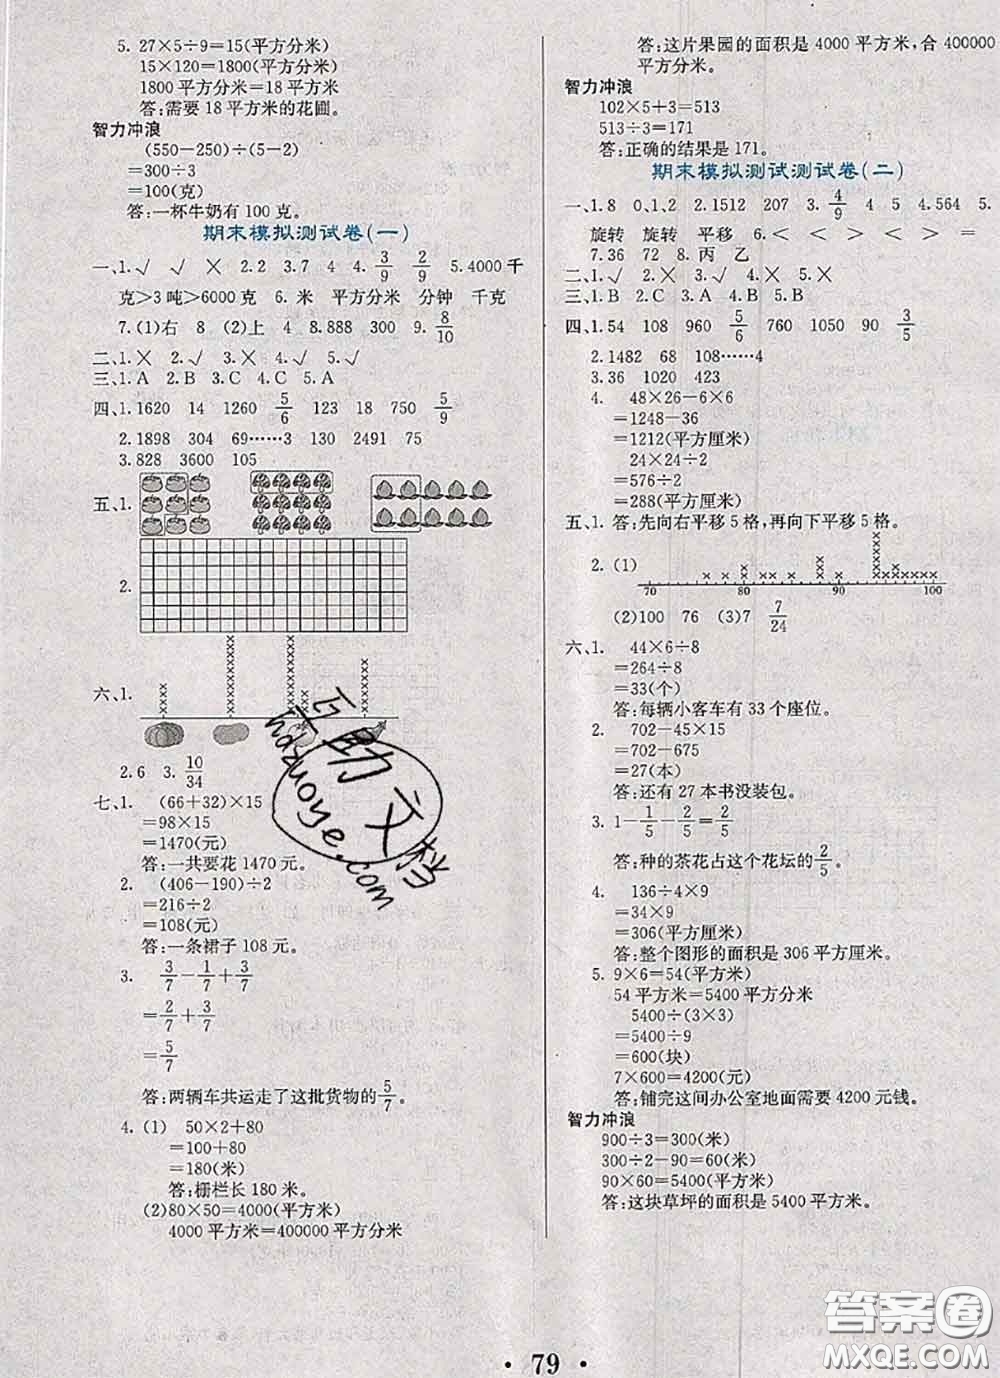 5. 27×5÷9=15(平方分米)
15×120=1800(平方分米)
1800平方分米=18平方米
答:需要18平方米的花圃。
智力冲浪
(550-250)÷(5-2)
=300÷3
=100(克)
答:一杯牛奶有100克。
期末模拟测试卷(一)
一、1.√ √ × 2.2 3.7 4 4.3/9 2/9 5.4000千
克>3吨>6000克 6.米 平方分米 分钟 千克
7.(1)右 8 (2)上 4 8.888 300 9.8/10
二、1.× 2.√ 3.× 4.√ 5.√
三、1.A 2.B 3.C 4.C 5.A
四、1.1620 14 1260 5/6 123 18 750 5/9
2.1898 304 69……3 130 2491 75
3.828 3600 105
五、1.
2.
六、1.
2.6 3.10/34
七、1. (66+32)×15
=98×15
=1470(元)
答:一共要花1470元。
2. (406-190)÷2
=216÷2
=108(元)
答:一条裙子108元。
3. 3/7-1/7+3/7
=2/7+3/7
=5/7
答:两辆车共运走了这批货物的5/7。
4. (1) 50×2+80
=100+80
=180(米)
答:栅栏长180米。
(2)80×50=4000(平方米)
4000平方米=400000平方分米
答:这片果园的面积是4000平方米,合400000
平方分米。
智力冲浪
102×5+3=513
513÷3=171
答:正确的结果是171。
期末模拟测试测试卷(二)
一、1.8 0、1、2 2.1512 207 3.4/9 4 5 4.564 5.
旋转 旋转 平移 6.< < > > > =
7.36 72 8.丙 乙
二、1.√ 2.× 3.√ 4.× 5.×
三、1.B 2.C 3.A 4.B 5.B
四、1.54 108 960 5/6 760 1050 90 3/5
2.1482 68 108……4
3.36 1020 423
4. 48×26-6×6
=1248-36
=1212(平方厘米)
24×24÷2
=576÷2
=288(平方厘米)
五、1. 答:先向右平移5格,再向下平移5格。
2. (1)
70 80 90 100
(2)100 76 (3)7 7/24
六、1. 44×6÷8
=264÷8
=33(个)
答:每辆小客车有33个座位。
2. 702-45×15
=702-675
=27(本)
答:还有27本书没装包。
3. 1-1/5-2/5=2/5
答:种的茶花占这个花坛的2/5。
4. 136÷4×9
=34×9
=306(平方厘米)
答:整个图形的面积是306平方厘米。
5. 9×6=54(平方米)
54平方米=5400平方分米
5400÷(3×3)
=5400÷9
=600(块)
7×600=4200(元)
答:铺完这间办公室地面需要4200元钱。
智力冲浪
900÷3=300(米)
300÷2-90=60(米)
90×60=5400(平方米)
答:这块草坪的面积是5400平方米。
百助文档
hdzuoye.com
答案圈
MXQE.COM
· 79 ·